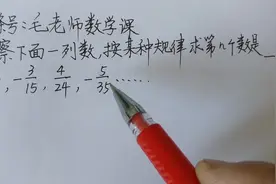 号:毛老师数学课
察下面一列数,按某种规律求第n个数是_
,-3/15,4/24,-5/35……